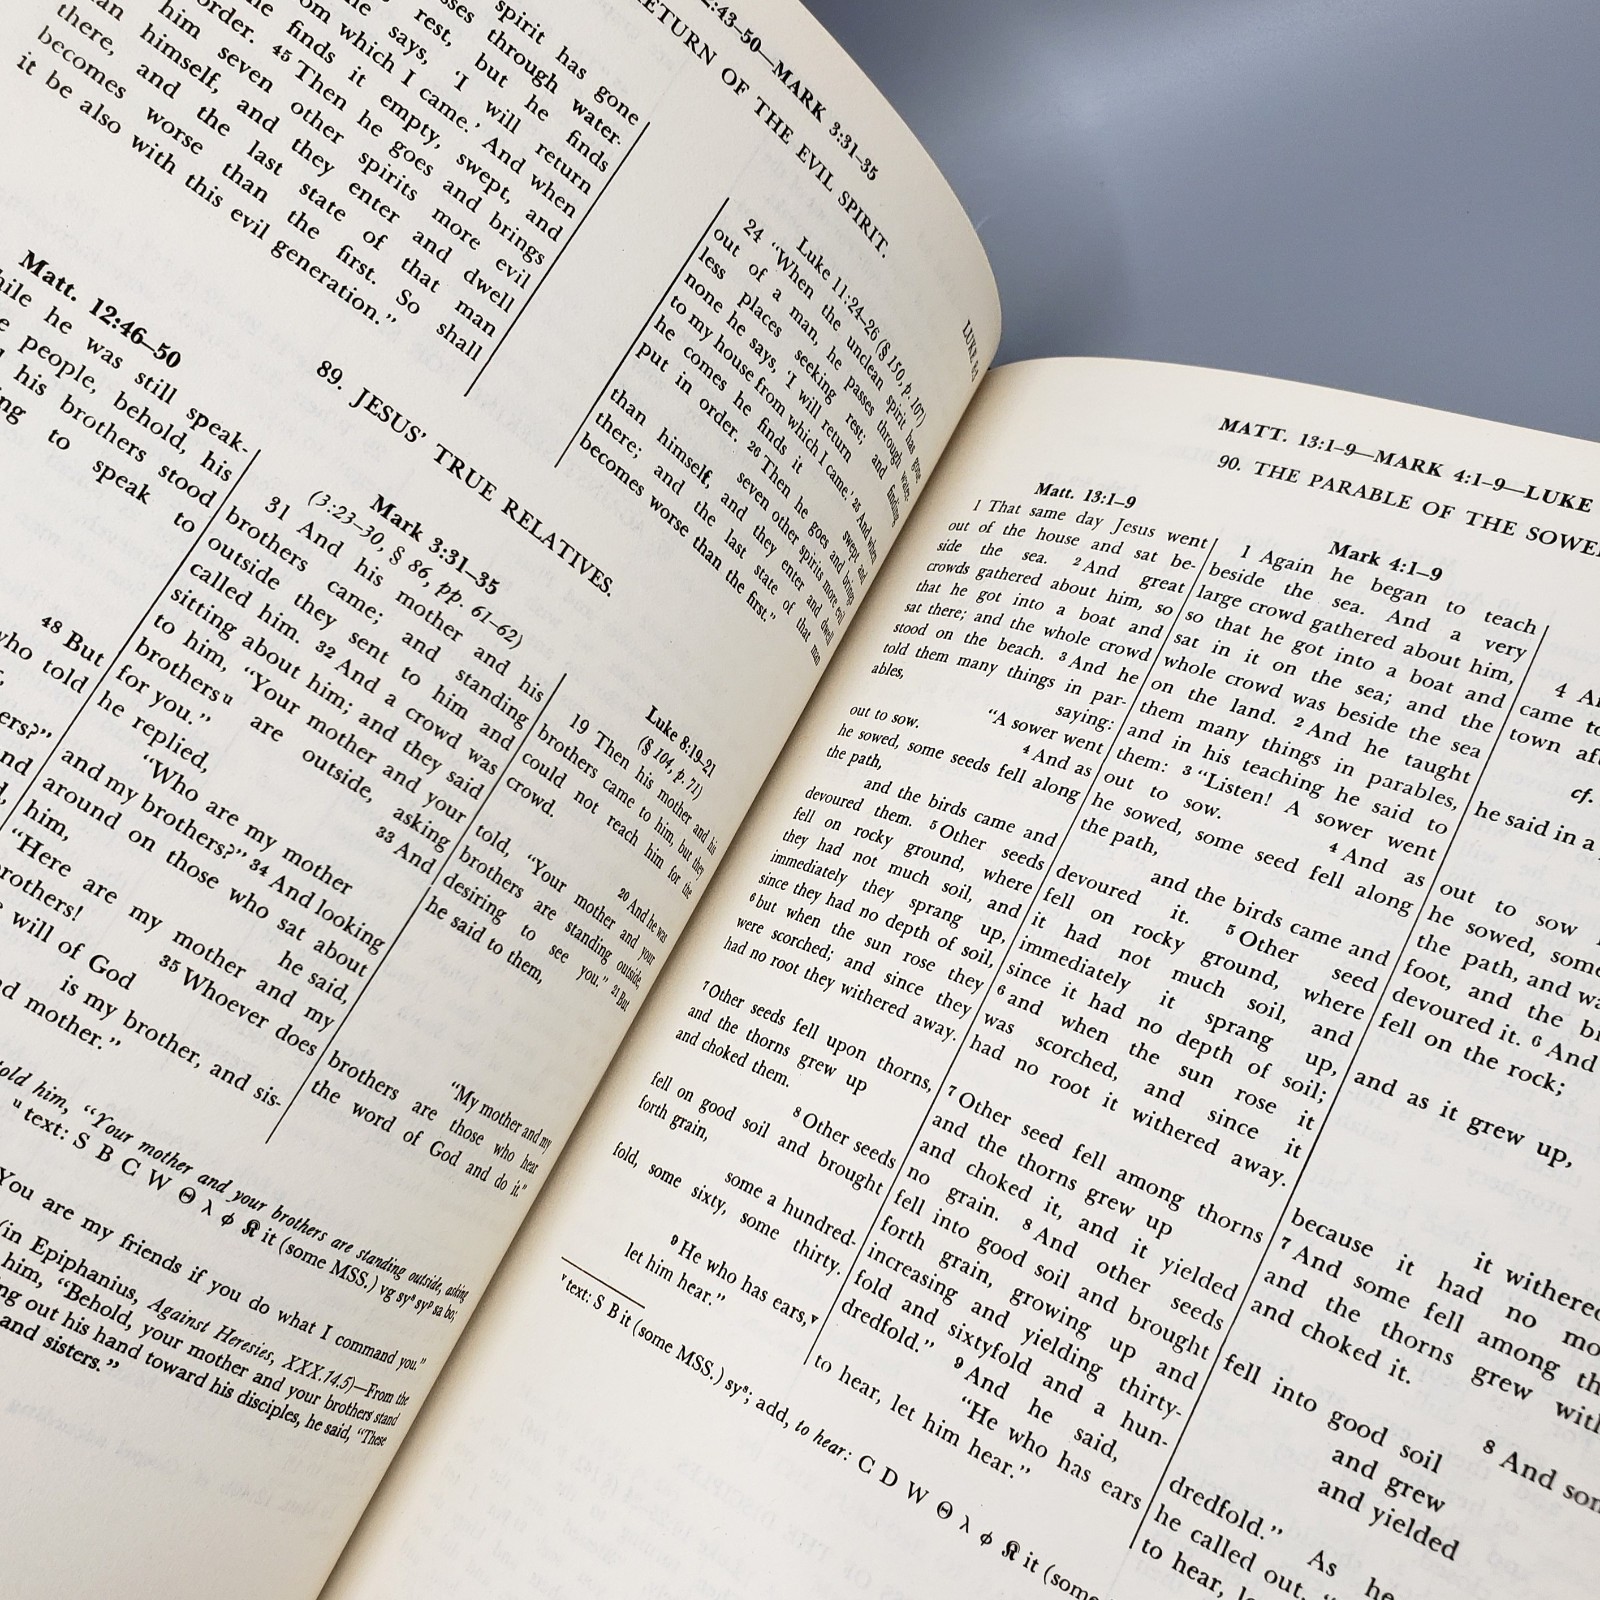 2:43-50—MARK 3:31-35
RETURN OF THE EVIL SPIRIT.
spirit has gone
through water-
rest, but he finds
says, 'I will return
om which I came.' And when
he finds it empty, swept, and
order. 45 Then he goes and brings
him seven other spirits more evil
than himself, and they enter and dwell
there, and the last state of that man
becomes worse than the first. So shall
it be also with this evil generation."
Luke 11:24-26 (§ 150, p. 107)
24 "When the unclean spirit has gone
out of a man, he passes through water-
less places seeking rest; and finding
none he says, 'I will return
to my house from which I came.' 25 And when
he comes he finds it swept and
put in order. 26 Then he goes and brings
seven other spirits more evil
than himself, and they enter and dwell
there; and the last state of that man
becomes worse than the first."
LUKE 8:4
89. JESUS' TRUE RELATIVES.
Matt. 12:46-50
while he was still speak-
people, behold, his
his brothers stood
to speak to
48 But
who told
Mark 3:31-35
(3:23-30, § 86, pp. 61-62)
31 And his mother and his
brothers came; and standing
outside they sent to him and
called him. 32 And a crowd was
sitting about him; and they said
to him, "Your mother and your
brothersᵘ are outside, asking
for you." 33 And
he replied,
"Who are my mother
and my brothers?" 34 And looking
around on those who sat about
him, he said,
"Here are my mother and my
brothers! 35 Whoever does
will of God
is my brother, and sis-
mother."
Luke 8:19-21
(§ 104, p. 71)
19 Then his mother and his
brothers came to him, but they
could not reach him for the
crowd.
20 And he was
told, "Your mother and your
brothers are standing outside,
desiring to see you." 21 But
he said to them,
"My mother and my
brothers are those who hear
the word of God and do it."
told him, "Your mother and your brothers are standing outside, asking
ᵘ text: S B C W Θ λ φ 𝔎 it (some MSS.) vg syˢ syᵖ sa bo;
You are my friends if you do what I command you."
(in Epiphanius, Against Heresies, XXX.14.5)—From the
him, "Behold, your mother and your brothers stand
out his hand toward his disciples, he said, "These
and sisters."
MATT. 13:1-9—MARK 4:1-9—LUKE
90. THE PARABLE OF THE SOWER
Matt. 13:1-9
1 That same day Jesus went
out of the house and sat be-
side the sea. 2 And great
crowds gathered about him, so
that he got into a boat and
sat there; and the whole crowd
stood on the beach. 3 And he
told them many things in par-
ables, saying:
"A sower went
out to sow. 4 And as
he sowed, some seeds fell along
the path,
and the birds came and
devoured them. 5 Other seeds
fell on rocky ground, where
they had not much soil, and
immediately they sprang up,
since they had no depth of soil,
6 but when the sun rose they
were scorched; and since they
had no root they withered away.
7 Other seeds fell upon thorns,
and the thorns grew up
and choked them.
8 Other seeds
fell on good soil and brought
forth grain,
some a hundred-
fold, some sixty, some thirty.
9 He who has ears,ᵛ
let him hear."
Mark 4:1-9
1 Again he began to teach
beside the sea. And a very
large crowd gathered about him,
so that he got into a boat and
sat in it on the sea; and the
whole crowd was beside the sea
on the land. 2 And he taught
them many things in parables,
and in his teaching he said to
them: 3 "Listen! A sower went
out to sow. 4 And as
he sowed, some seed fell along
the path,
and the birds came and
devoured it. 5 Other seed
fell on rocky ground, where
it had not much soil, and
immediately it sprang up,
since it had no depth of soil;
6 and when the sun rose it
was scorched, and since it
had no root it withered away.
7 Other seed fell among thorns
and the thorns grew up
and choked it, and it yielded
no grain. 8 And other seeds
fell into good soil and brought
forth grain, growing up and
increasing and yielding thirty-
fold and sixtyfold and a hun-
dredfold." 9 And he said,
"He who has ears
to hear, let him hear."
4
came to
town
cf.
he said in a
out to sow
he sowed, some
the path, and
foot, and the
devoured it. 6 And
fell on the rock;
and as it grew up,
it withered
because it had no
7 And some fell among
and the thorns grew with
and choked it.
8 And
fell into good soil
and grew
and yielded
dredfold." As he
he called out,
to hear,
ᵛ text: S B it (some MSS.) syˢ; add, to hear: C D W Θ λ φ 𝔎 it (some